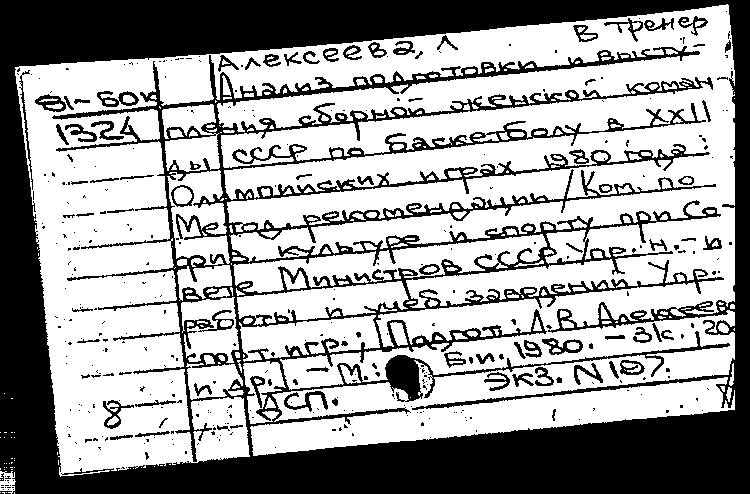 В тренер
Алексеева, Л
81-БОК Анализ подготовки и высту-
1324 пления сборной женской коман-
ды СССР по баскетболу в XXII
Олимпийских играх 1980 года:
Метод. рекомендации / Ком. по
физ. культуре и спорту при Со-
вете Министров СССР. Упр. н.-и.
работы и учеб. заведений. Упр.
спорт. игр.; [Подгот.: Л.В. Алексеева
и др.]. - М.: Б.и., 1980. - 31с.; 20
8 ДСП. Экз. N 197.